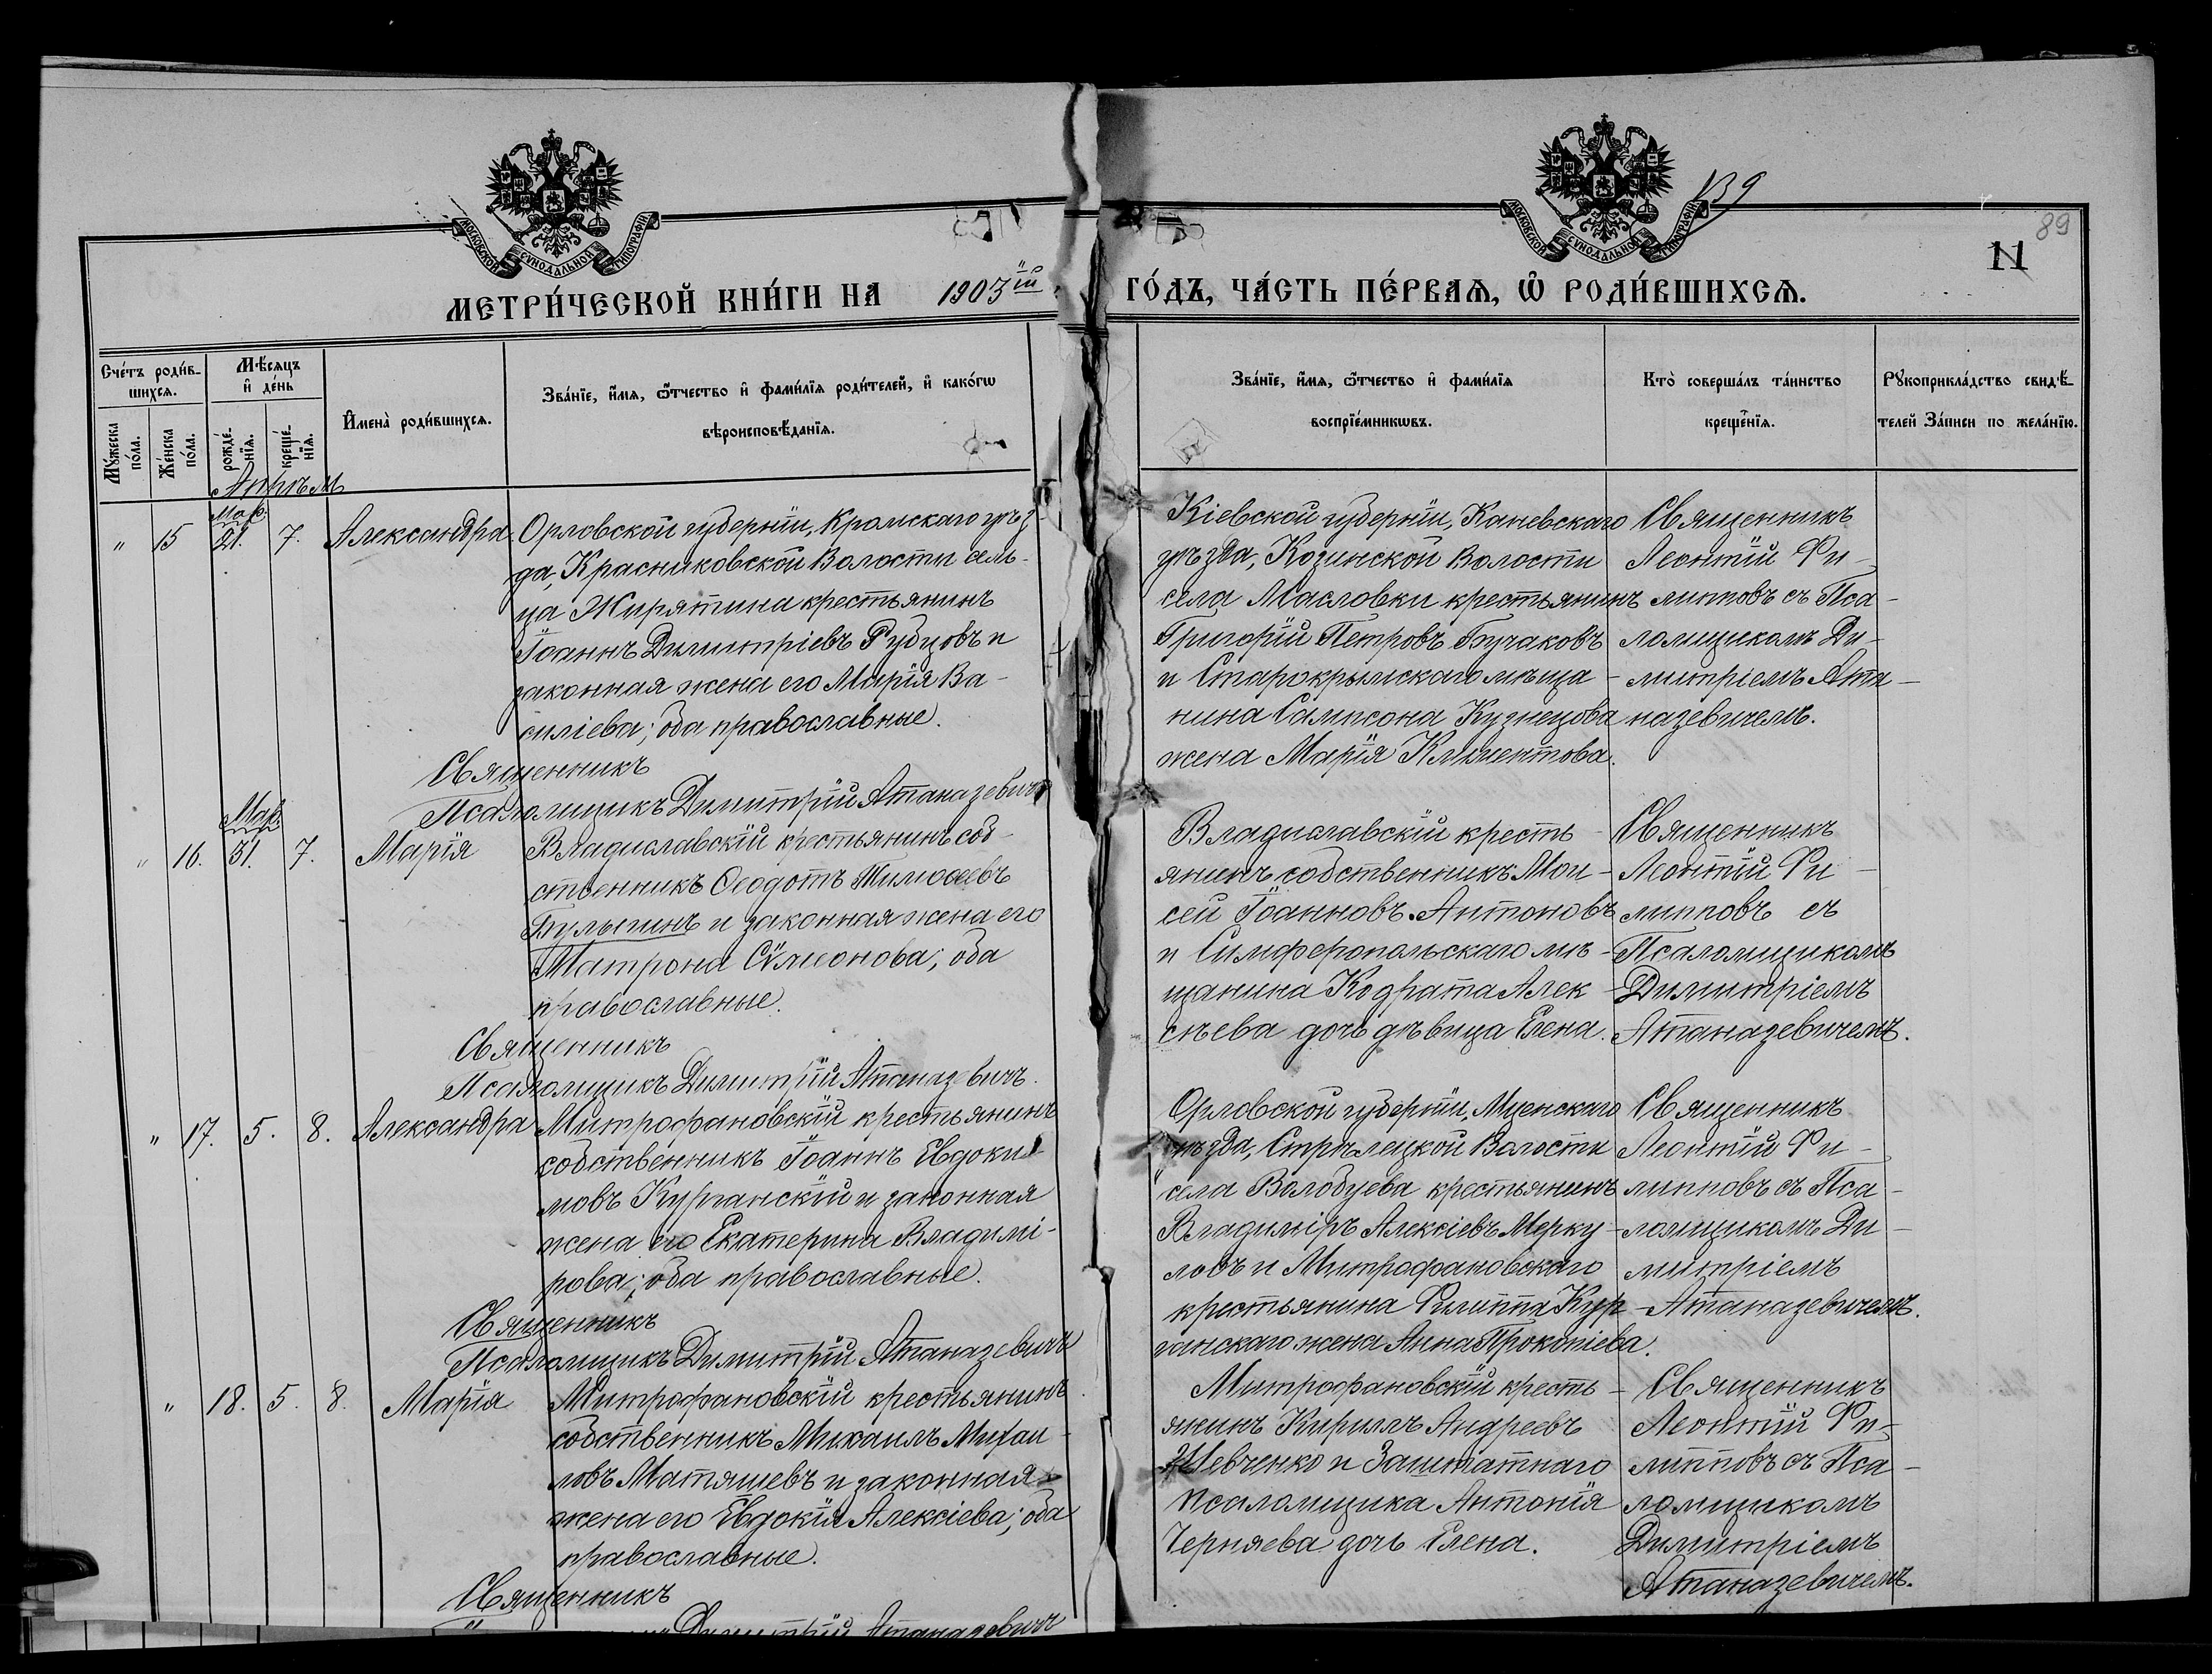 139
89
11
МОСКОВСКОЙ СѴНОДАЛЬНОЙ ТИПОГРАФІИ
МОСКОВСКОЙ СѴНОДАЛЬНОЙ ТИПОГРАФІИ
МЕТРИ́ЧЕСКОЙ КНИ́ГИ НА 1903 ГО́ДЪ, ЧА́СТЬ ПЕ́РВАѦ, Ѡ҆ РОДИ́ВШИХСѦ.
Сче́тъ роди́в-
шихсѧ.
Мꙋ́жеска по́ла.
Же́нска по́ла.
Мѣ́сѧцъ
и҆ де́нь
рожде́-
нїѧ.
креще́-
нїѧ.
И҆мена̀ роди́вшихсѧ.
Зва́нїе, и҆́мѧ, ѻ҆́тчество и҆ фами́лїѧ роди́телей, и҆ како́гѡ
вѣроисповѣ́данїѧ.
Зва́нїе, и҆́мѧ, ѻ҆́тчество и҆ фами́лїѧ
воспрїе́мникѡвъ.
Кто̀ соверша́лъ та́инство
креще́нїѧ.
Рꙋкоприкла́дство свидѣ́-
телей За́писи по жела́нїю.
Апрѣль
" 15 Мар. 21. 7. Александра
Орловской губерніи, Кромскаго уѣз-
да, Красниковской Волости сель-
ца Жирятина крестьянинъ
Іоаннъ Димитріевъ Рубцовъ и
законная жена его Марія Ва-
силіева; оба православные.
Священникъ
Псаломщикъ Димитрій Атаназевичъ
Кіевской губерніи, Каневскаго
уѣзда, Козинской Волости
села Масловки крестьянинъ
Григорій Петровъ Бучаковъ
и Старокрымскаго мѣща-
нина Сампсона Кузнецова
жена Марія Климентова.
Священникъ
Леонтій Фи-
липповъ съ Пса-
ломщикомъ Ди-
митріемъ Ата-
назевичемъ.
" 16. Мар. 31. 7. Марія
Владиславскій крестьянинъ соб-
ственникъ Ѳеодотъ Тимоѳеевъ
Булыгинъ и законная жена его
Матрона Сѵмеонова; оба
православные.
Священникъ
Псаломщикъ Димитрій Атаназевичъ.
Владиславскій кресть-
янинъ собственникъ Мои-
сей Іоанновъ Антоновъ
и Симферопольскаго мѣ-
щанина Кодрата Алек-
сѣева дочь дѣвица Елена.
Священникъ
Леонтій Фи-
липповъ съ
Псаломщикомъ
Димитріемъ
Атаназевичемъ.
" 17. 5. 8. Александра
Митрофановскій крестьянинъ
собственникъ Іоаннъ Евдоки-
мовъ Курганскій и законная
жена его Екатерина Владимі-
рова; оба православные.
Священникъ
Псаломщикъ Димитрій Атаназевичъ
Орловской губерніи, Мценскаго
уѣзда, Стрѣлецкой Волости
села Волобуева крестьянинъ
Владиміръ Алексіевъ Мерку-
ловъ и Митрофановскаго
крестьянина Филиппа Кур-
ганскаго жена Анна Прокопіева.
Священникъ
Леонтій Фи-
липповъ съ Пса-
ломщикомъ Ди-
митріемъ
Атаназевичемъ.
" 18. 5. 8. Марія
Митрофановскій крестьянинъ
собственникъ Михаилъ Михаи-
ловъ Матяшевъ и законная
жена его Евдокія Алексіева; оба
православные.
Священникъ
Димитрій Атаназевичъ
Митрофановскій кресть-
янинъ Кириллъ Андреевъ
Шевченко и Заштатнаго
псаломщика Антонія
Черняева дочь Елена.
Священникъ
Леонтій Фи-
липповъ съ Пса-
ломщикомъ
Димитріемъ
Атаназевичемъ.